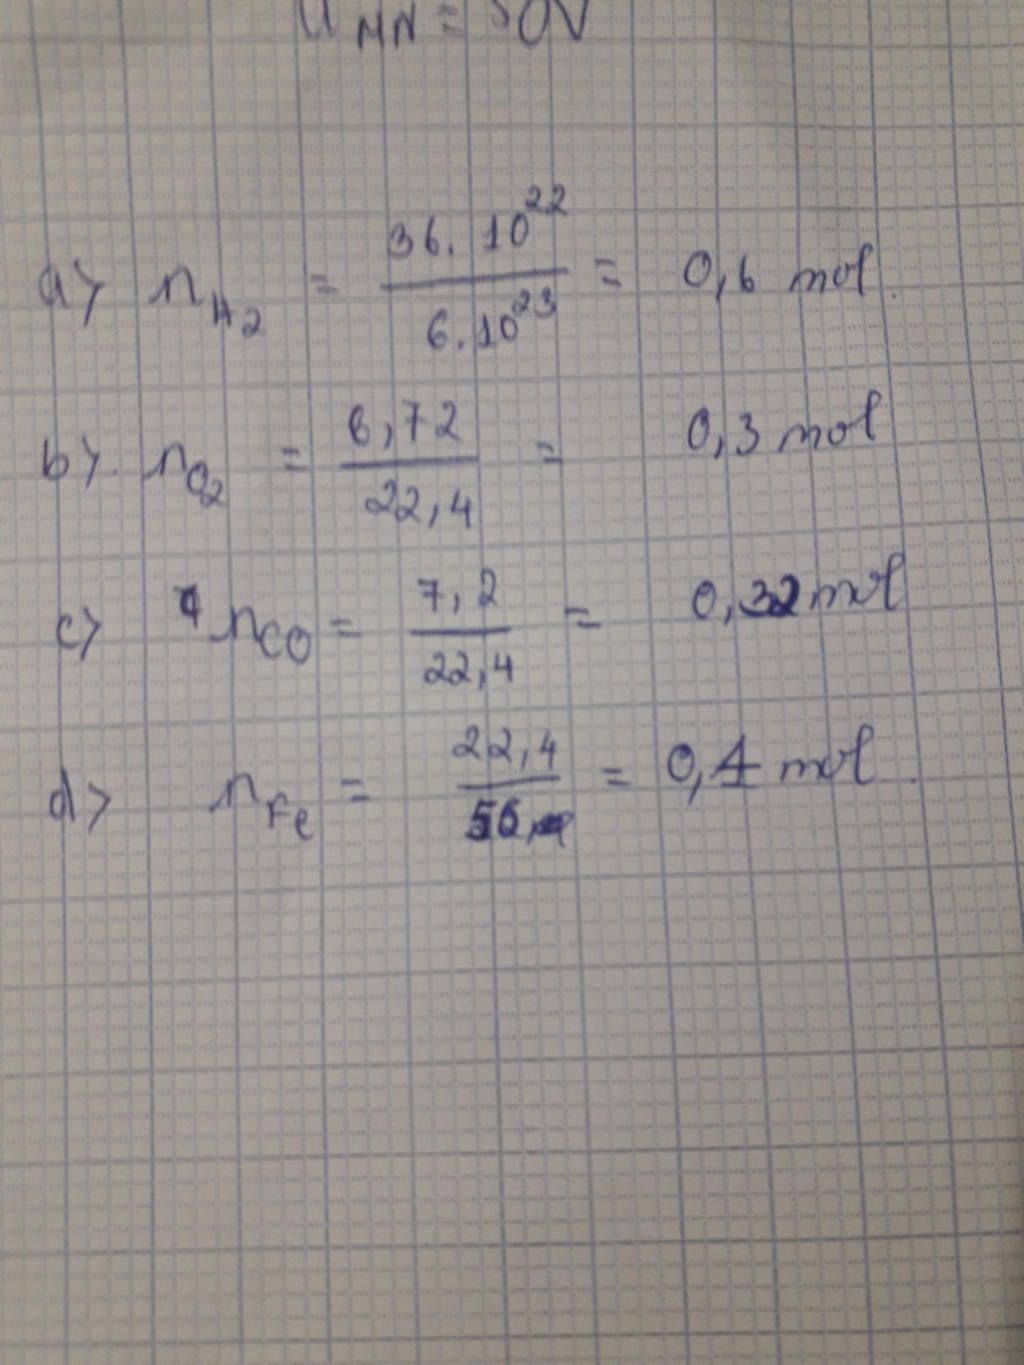 U MN = 50V
a) n H₂ = 36. 10²² / 6. 10²³ = 0,6 mol.
b) n O₂ = 6,72 / 22,4 = 0,3 mol
c) n CO = 7,2 / 22,4 = 0,32 mol
d) n Fe = 22,4 / 56 = 0,4 mol.